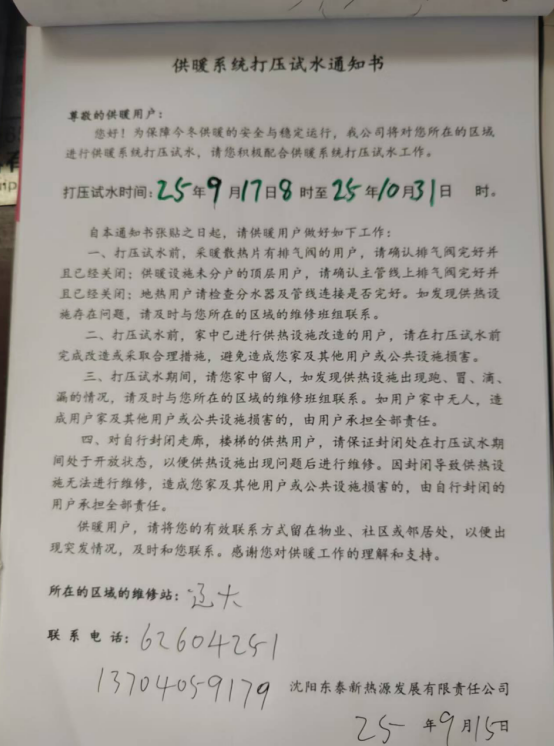 供暖系统打压试水通知书
尊敬的供暖用户：
您好！为保障今冬供暖的安全与稳定运行，我公司将对您所在的区域
进行供暖系统打压试水，请您积极配合供暖系统打压试水工作。
打压试水时间：25年9月17日8时至25年10月31日 时。
自本通知书张贴之日起，请供暖用户做好如下工作：
一、打压试水前，采暖散热片有排气阀的用户，请确认排气阀完好并
且已经关闭；供暖设施未分户的顶层用户，请确认主管线上排气阀完好并
且已经关闭；地热用户请检查分水器及管线连接是否完好。如发现供热设
施存在问题，请及时与您所在的区域的维修班组联系。
二、打压试水前，家中已进行供热设施改造的用户，请在打压试水前
完成改造或采取合理措施，避免造成您家及其他用户或公共设施损害。
三、打压试水期间，请您家中留人，如发现供热设施出现跑、冒、滴、
漏的情况，请及时与您所在的区域的维修班组联系。如用户家中无人，造
成用户家及其他用户或公共设施损害的，由用户承担全部责任。
四、对自行封闭走廊，楼梯的供热用户，请保证封闭处在打压试水期
间处于开放状态，以便供热设施出现问题后进行维修。因封闭导致供热设
施无法进行维修，造成您家及其他用户或公共设施损害的，由自行封闭的
用户承担全部责任。
供暖用户，请将您的有效联系方式留在物业、社区或邻居处，以便出
现突发情况，及时和您联系。感谢您对供暖工作的理解和支持。
所在的区域的维修站：辽大
联系电话：62604251
13704059179 沈阳东泰新热源发展有限责任公司
25年9月15日